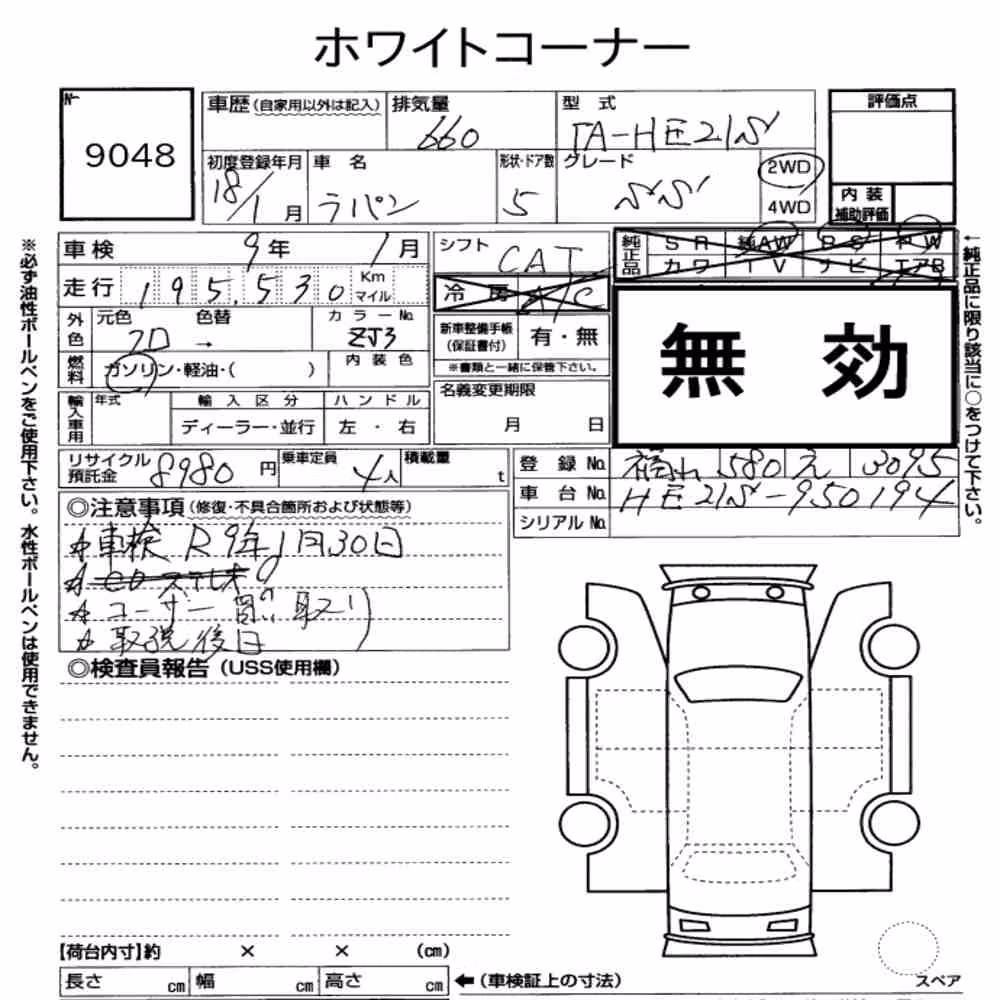 ホワイトコーナー
№
9048
車歴(自家用以外は記入)
排気量
660
型 式
TA-HE21S
初度登録年月
18/1月
車 名
ラパン
形状・ドア数
5
グレード
SS
2WD
4WD
評価点
内 装
補助評価
車検 9年 1月
走行 195,530 Km マイル
外色
元色 色替
→
カラーNo.
ZJ3
燃料
ガソリン・軽油・( )
内装色
輸入車用
年式
輸入区分
ディーラー・並行
ハンドル
左・右
シフト
CAT
冷 房 A/C
新車整備手帳
(保証書付)
有・無
※書類と一緒に保管下さい。
名義変更期限
月 日
純正品
SR 純AW PS PW
カワ TV ナビ エアB
無 効
リサイクル
預託金
8980円
乗車定員
4人
積載量
t
登 録 No. 580 え 3095
車 台 No. HE21S-950194
シリアル No.
◎注意事項(修復・不具合箇所および状態等)
車検 R9年1月30日
ユーザー買い取り
取説後日
◎検査員報告(USS使用欄)
【荷台内寸】約 × × (cm)
長さ cm 幅 cm 高さ cm
←(車検証上の寸法)
スペア
※必ず油性ボールペンをご使用下さい。水性ボールペンは使用できません。
←純正品に限り該当に○をつけて下さい。